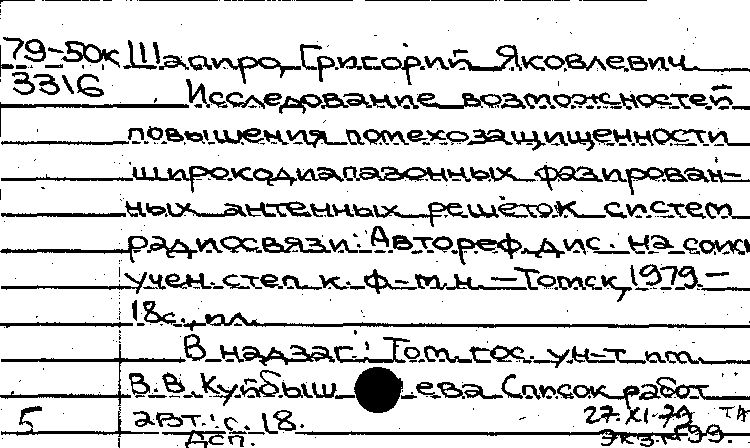 79-50к Шапиро, Григорий Яковлевич.
3316
Исследование возможностей
повышения помехозащищенности
широкодиапазонных фазирован-
ных антенных решёток систем
радиосвязи: Автореф. дис. на соиск
учен. степ. к. ф-м.н. — Томск, 1979 —
18с., ил.
В надзаг: Том. гос. ун-т им.
В.В. Куйбышева Список работ
5 авт.: с. 18. 27.XI.79 ТА
Дсп. экз. №99.